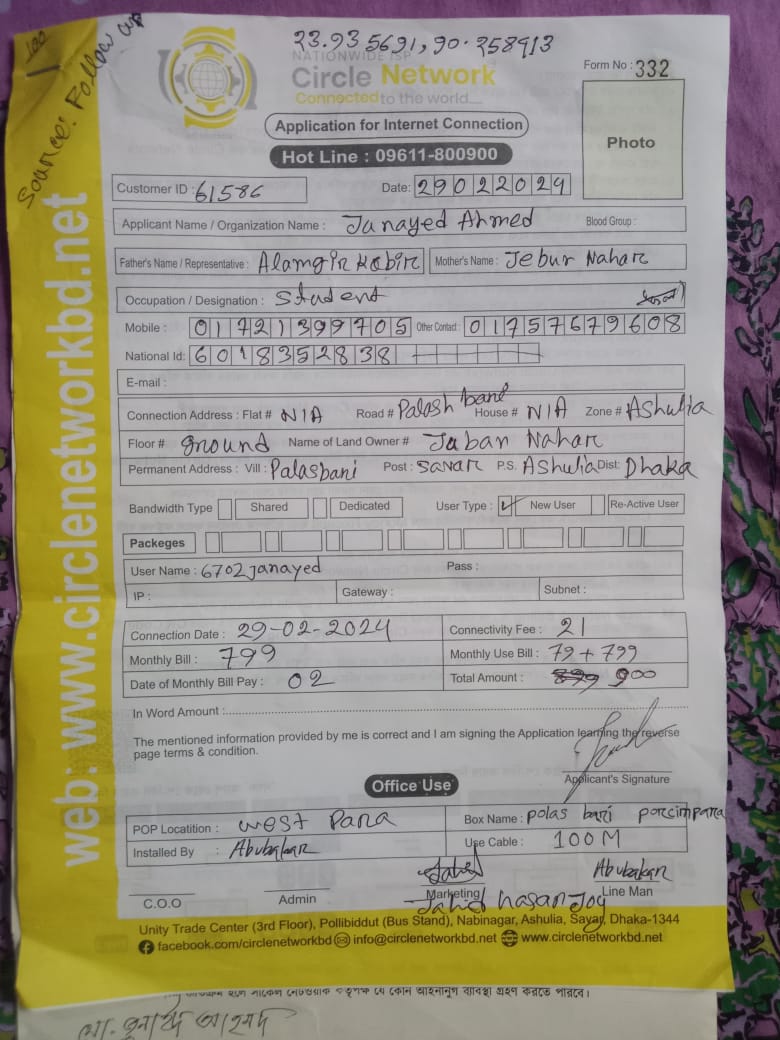 100
Source: Follow up
23.935691, 90.258913
NATIONWIDE ISP
Circle Network
Connected to the world....
Form No : 332
Application for Internet Connection
Photo
Hot Line : 09611-800900
Customer ID : 61586 Date: 29022024
Applicant Name / Organization Name : Junayed Ahmed Blood Group :
Father's Name / Representative : Alamgir Kobir Mother's Name : Jebun Nahar
Occupation / Designation : Student
Mobile : 01721399705 Other Contact : 01757679608
National Id: 6018352838
E-mail :
Connection Address : Flat # N/A Road # Palash bari House # N/A Zone # Ashulia
Floor # ground Name of Land Owner # Jaban Nahar
Permanent Address : Vill : Palasbari Post : Savar P.S. Ashulia Dist: Dhaka
Bandwidth Type Shared Dedicated User Type : ✓ New User Re-Active User
Packeges
User Name : 6702junayed Pass :
IP : Gateway : Subnet :
Connection Date : 29-02-2024 Connectivity Fee : 21
Monthly Bill : 799 Monthly Use Bill : 79 + 799
Date of Monthly Bill Pay : 02 Total Amount : 899 900
In Word Amount :
The mentioned information provided by me is correct and I am signing the Application learning the reverse
page terms & condition.
Applicant's Signature
Office Use
POP Locatition : west Para Box Name : polas bari porcimpara
Installed By : Abubakar Use Cable : 100M
Jahid Abubakar
C.O.O Admin Marketing Line Man
Jahid hasan Joy
Unity Trade Center (3rd Floor), Pollibiddut (Bus Stand), Nabinagar, Ashulia, Savar, Dhaka-1344
facebook.com/circlenetworkbd info@circlenetworkbd.net www.circlenetworkbd.net
web: www.circlenetworkbd.net
হলে সার্কেল নেটওয়ার্ক কর্তৃপক্ষ যে কোন আইনানুগ ব্যবস্থা গ্রহণ করতে পারবে।
মো. জুনায়েদ আহমদ